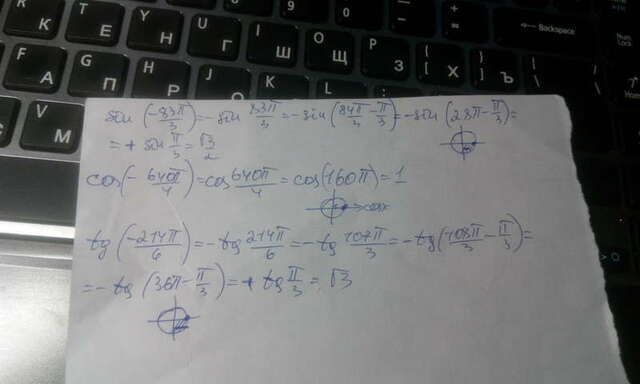 R К T Е Y Н U Г I Ш O Щ P З { [ Х } ] Ъ
9 0 - + = ← Backspace Num Lock
F А G П H Р J K L
V М
sin (-83π/3) = - sin 83π/3 = - sin (84π/3 - π/3) = - sin (28π - π/3) =
= + sin π/3 = √3/2
cos (- 640π/4) = cos 640π/4 = cos (160π) = 1
cosx
tg (-214π/6) = - tg 214π/6 = - tg 107π/3 = - tg (108π/3 - π/3) =
= - tg (36π - π/3) = + tg π/3 = √3